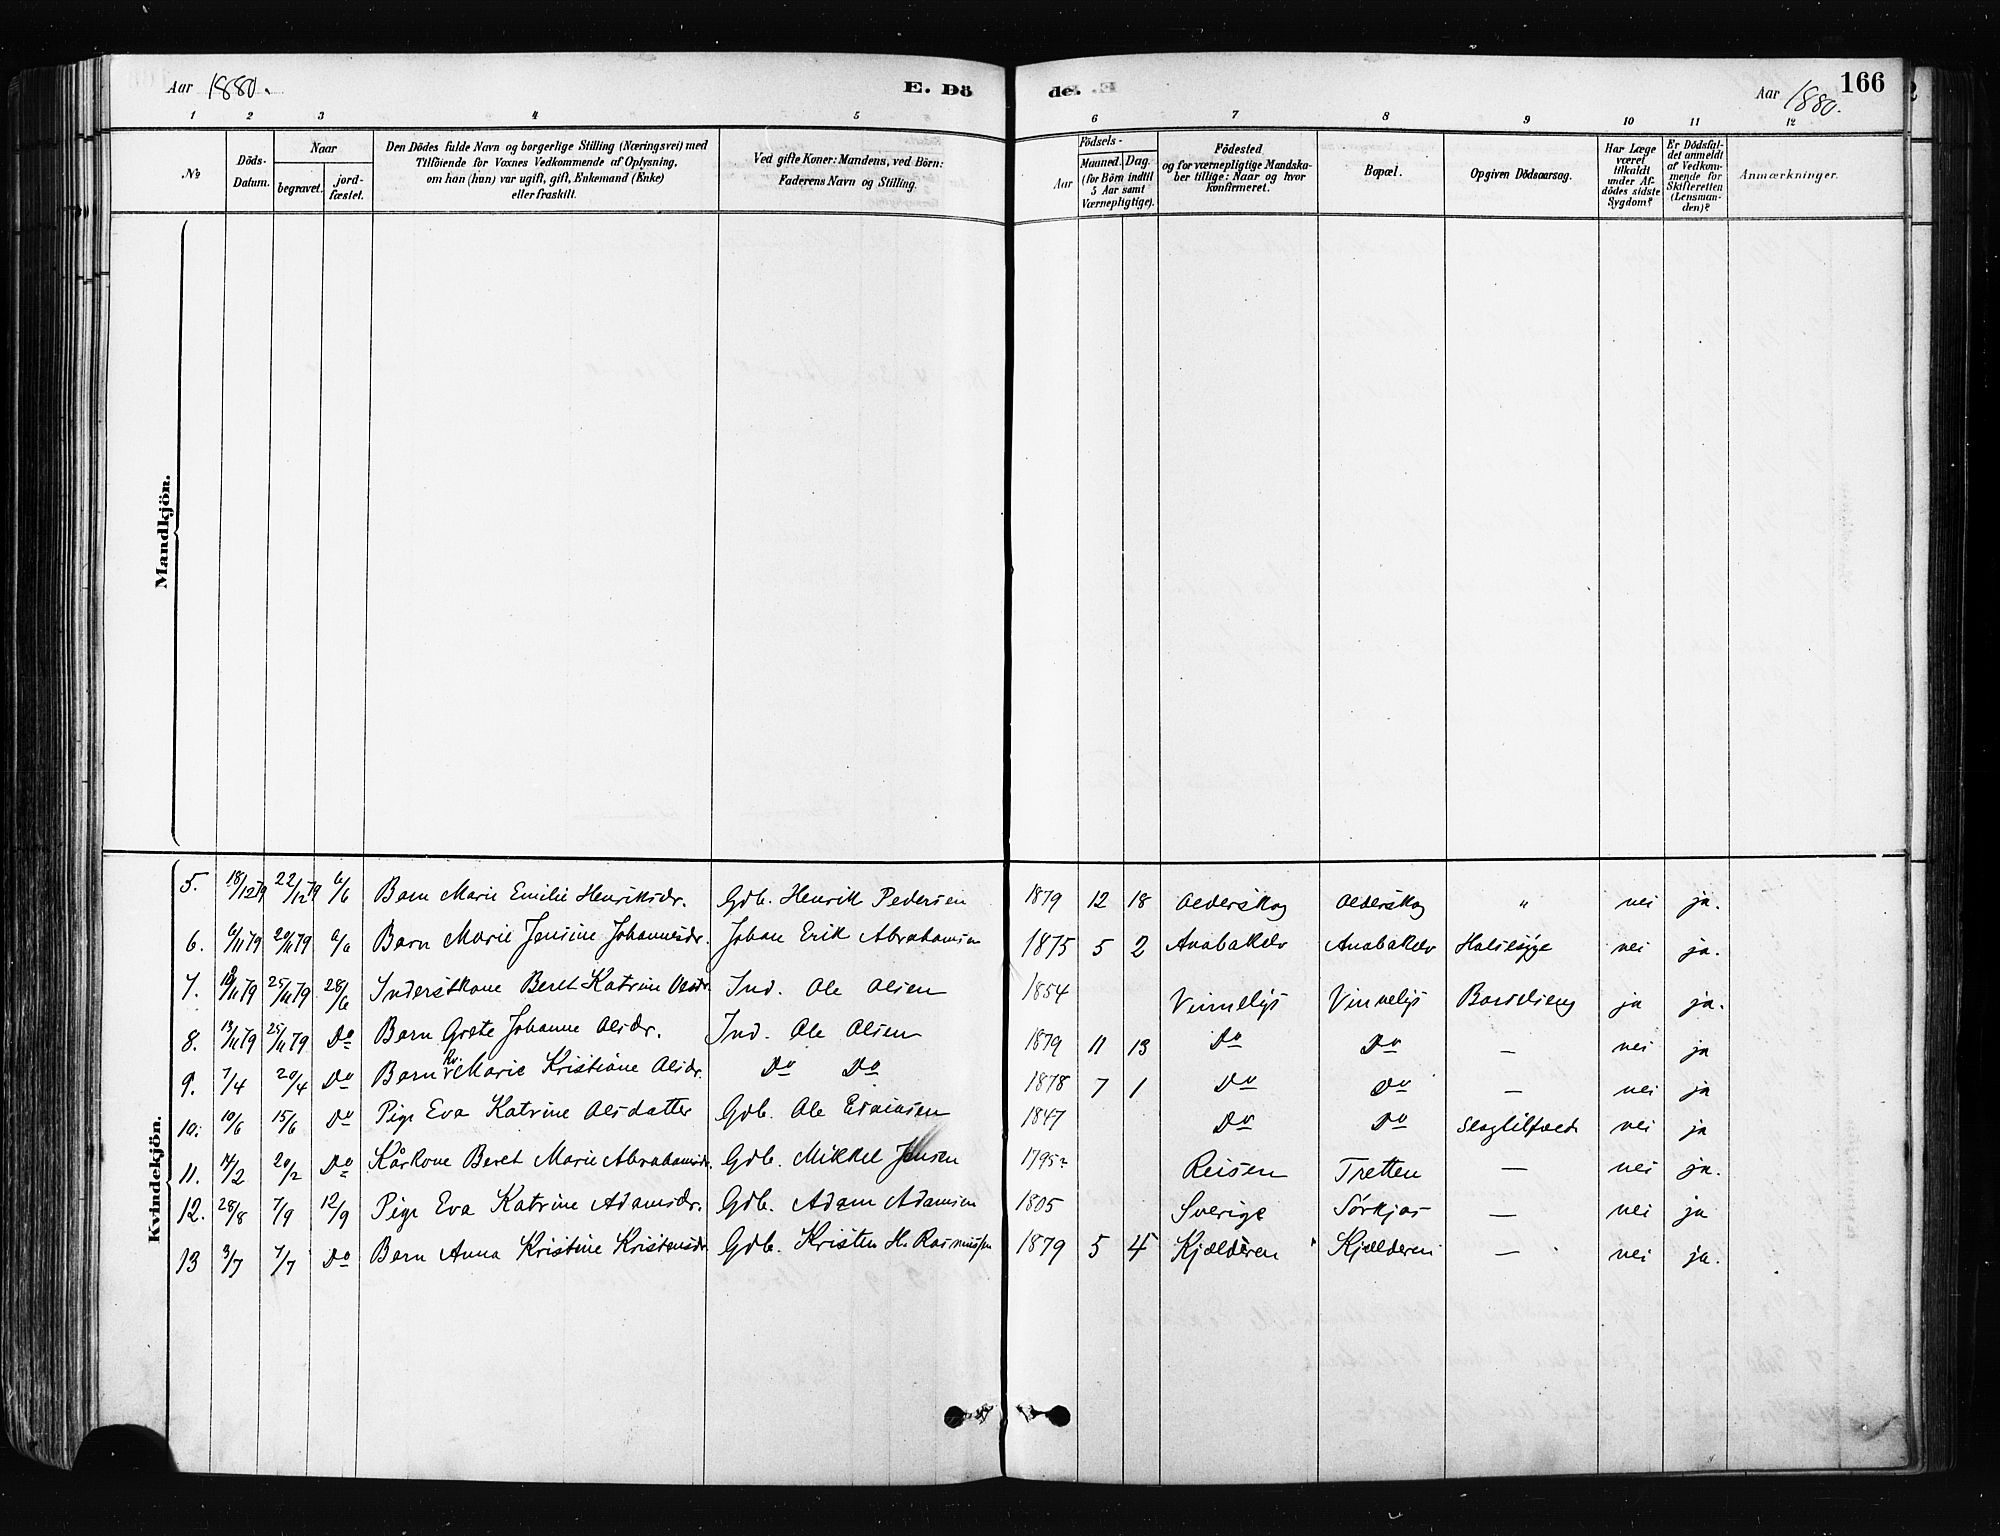 Aar 1880. E. Dö de. Aar 1880. 166
1 2 3 4 5 6 7 8 9 10 11 12
№ Döds-Datum. Naar begravet. jord-fæstet. Den Dödes fulde Navn og borgerlige Stilling (Næringsvei) med Tilföiende for Voxnes Vedkommende af Oplysning, om han (hun) var ugift, gift, Enkemand (Enke) eller fraskilt. Ved gifte Koner: Mandens, ved Börn: Faderens Navn og Stilling. Födsels- Aar Maaned. Dag. (for Börn indtil 5 Aar samt Værnepligtige). Födested og for værnepligtige Mandska-ber tillige: Naar og hvor konfirmeret. Bopæl. Opgiven Dödsaarsag. Har Læge været tilkaldt under Af-dödes sidste Sygdom? Er Dödsfal-det anmeldt af Vedkom-mende for Skifteretten (Lensman-den)? Anmærkninger.
Mandkjön.
Kvindekjön.
5. 18/12 79 22/12 79 6/6 Barn Marie Emilie Henriksdr. Gdb. Henrik Pedersen 1879 12 18 Olderskog Olderskog " nei ja.
6. 6/11 79 20/11 79 6/6 Barn Marie Jensine Johannesdr. Johan Erik Abrahamsen 1875 5 2 Anabakelv Anabakelv Halsesyge nei ja.
7. 25/11 79 28/6 Inderstkone Beret Katrine Olsdr. Ind. Ole Olsen 1854 ja ja.
8. 13/11 79 25/11 79 Do Barn Grete Johanne Olsdr. Ind. Ole Olsen 1879 11 13 Do Do — nei ja
9. 7/4 20/4 Do Barn Marie Kristiane Olsdr. Do Do 1878 7 1 Do Do — nei ja
10. 10/6 15/6 Do Pige Eva Katrine Olsdatter Gdb. Ole 1847 Do Do nei ja
11. 14/2 20/2 Do Kårkone Beret Marie Abrahamsdr. Gdb. Mikkel Jensen 1795? Reisen Tretten — nei ja.
12. 28/8 7/9 12/9 Pige Eva Katrine Adamsdr. Gdb. Adam Adamsen 1805 Sverige Sørkjos — nei ja
13 3/7 7/7 Do Barn Anna Kristine Kristensdr. Gdb. Kristen H. Rasmussen 1879 5 4 Kjælderen Kjælderen — nei ja.